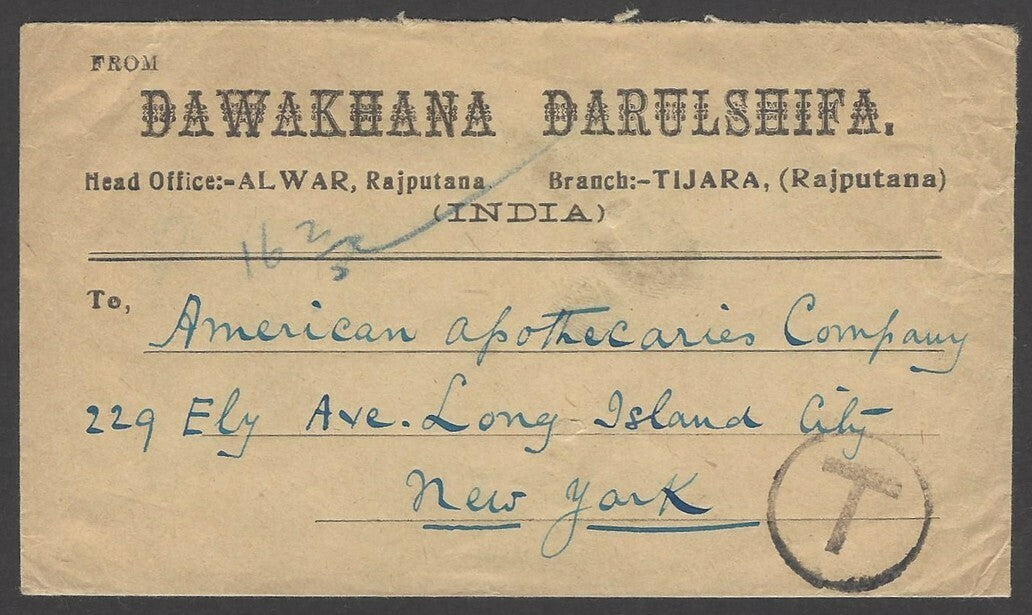 FROM
DAWAKHANA DARULSHIFA.
Head Office:-ALWAR, Rajputana. Branch:-TIJARA, (Rajputana)
(INDIA)
16 2
To,
American Apothecaries Company
229 Ely Ave. Long Island City
New York
T